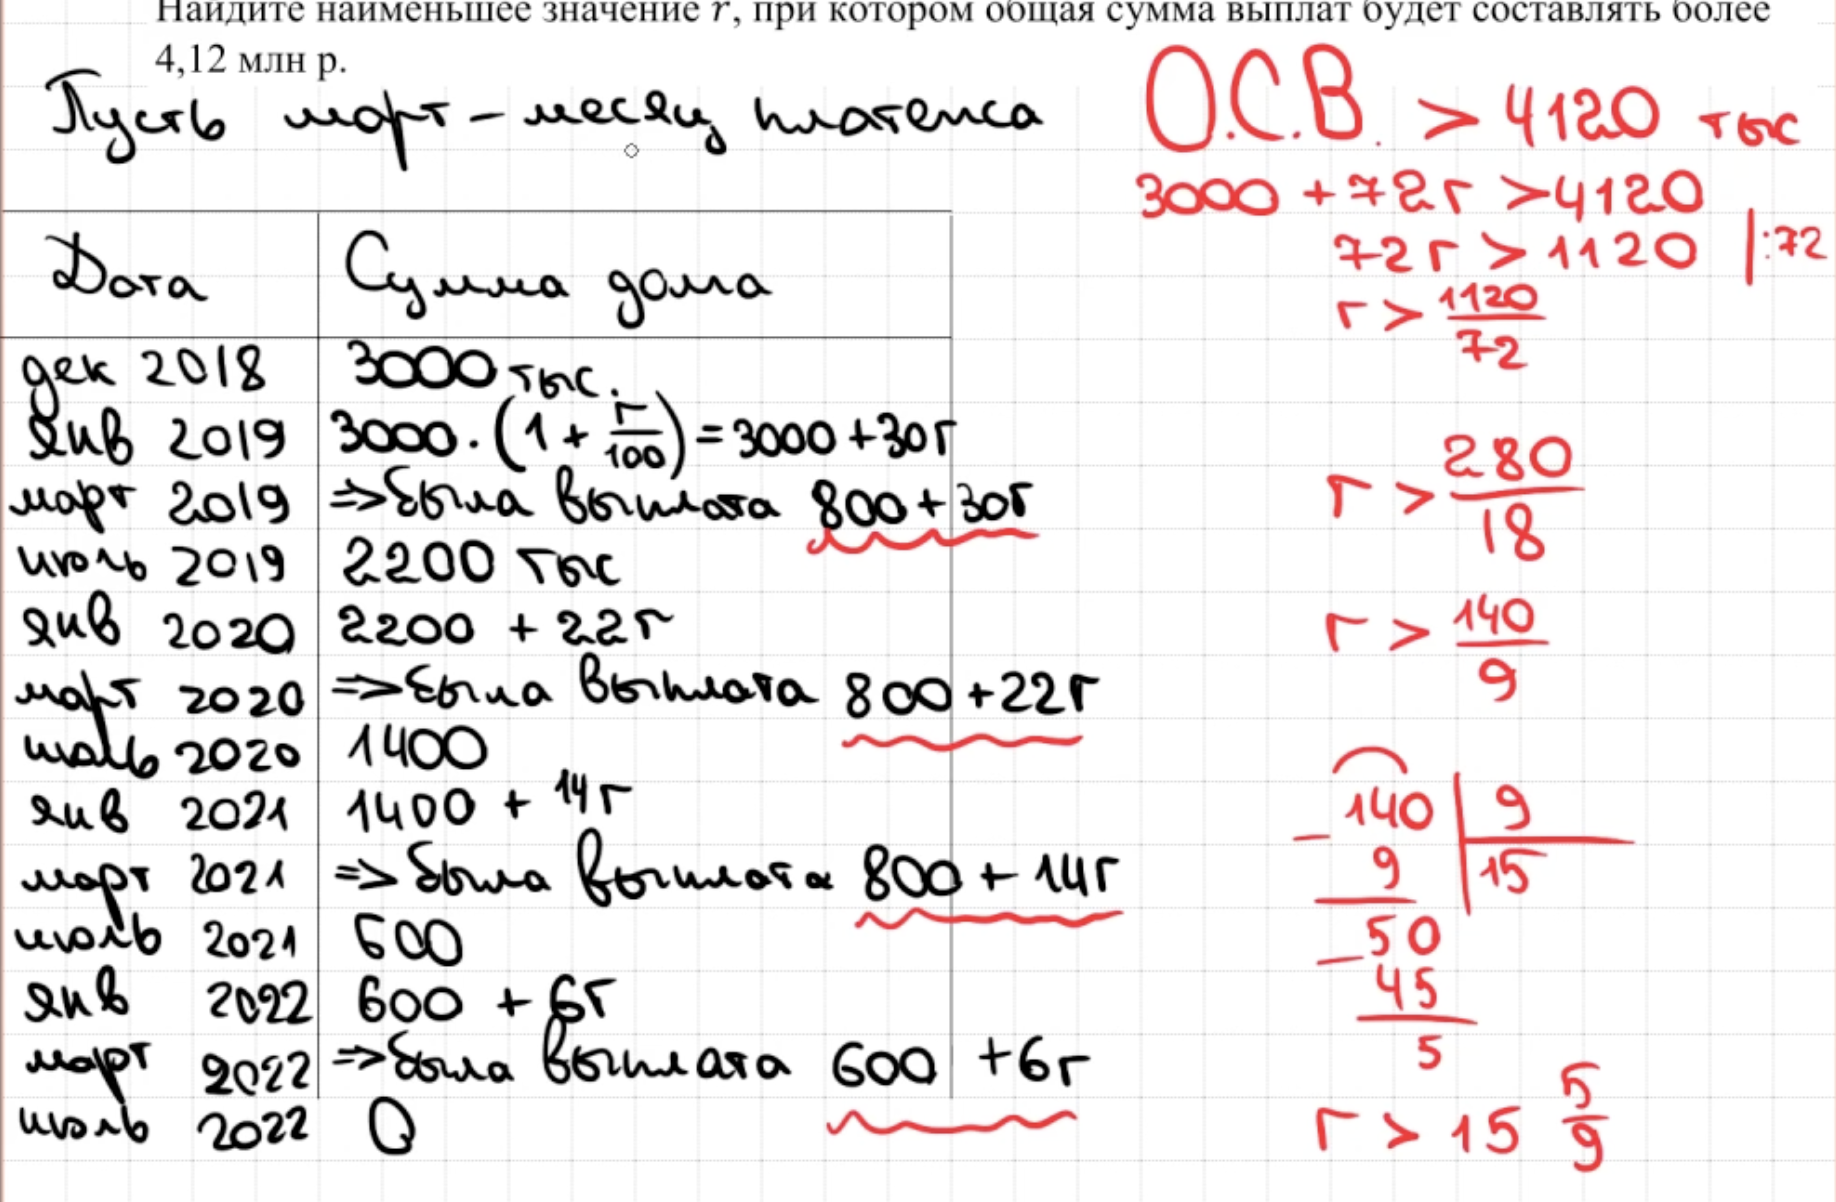 Найдите наименьшее значение r, при котором общая сумма выплат будет составлять более
4,12 млн р.
Пусть март – месяц платежа
Дата Сумма долга
дек 2018 3000 тыс.
янв 2019 3000 · (1 + r/100) = 3000 + 30r
март 2019 => была выплата 800 + 30r
июль 2019 2200 тыс
янв 2020 2200 + 22r
март 2020 => была выплата 800 + 22r
июль 2020 1400
янв 2021 1400 + 14r
март 2021 => была выплата 800 + 14r
июль 2021 600
янв 2022 600 + 6r
март 2022 => была выплата 600 + 6r
июль 2022 0
О.С.В. > 4120 тыс
3000 + 72r > 4120
72r > 1120 |:72
r > 1120/72
r > 280/18
r > 140/9
– 140 | 9
9 | 15
– 50
45
5
r > 15 5/9